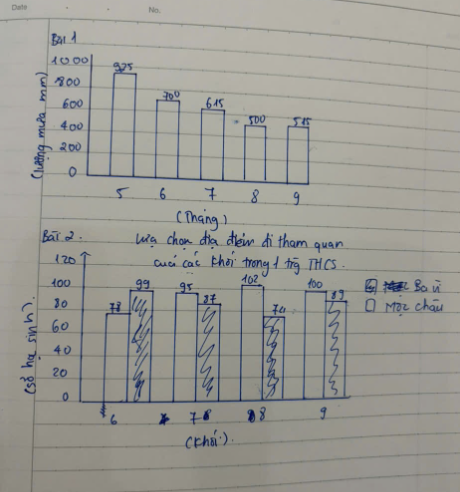 Date
No.
Bài 1
(lượng mưa mm)
1000
800
600
400
200
0
925
700
615
500
515
5 6 7 8 9
(Tháng)
Bài 2.
Lựa chọn địa điểm đi tham quan
của các khối trong 1 trg THCS.
(số học sinh).
120
100
80
60
40
20
0
78 99 95 87 102 74 100 89
Ba Vì
Mộc Châu
6 7 8 9
(Khối).